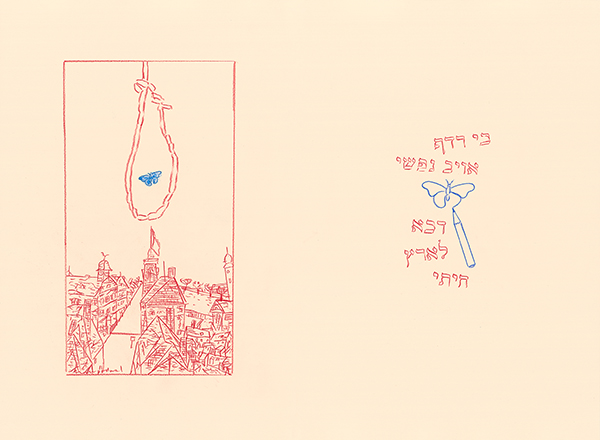 כי רדף
אויב נפשי
דכא
לארץ
חיתי